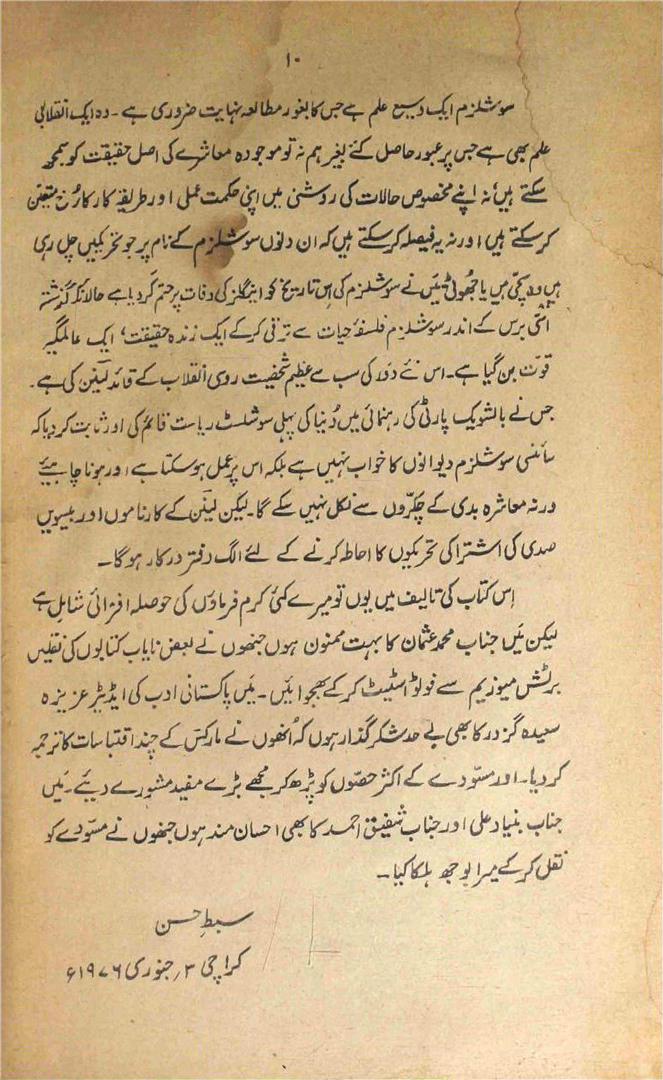 ۱۰
سوشلزم ایک وسیع علم ہے جس کا بغور مطالعہ نہایت ضروری ہے ۔ وہ ایک انقلابی
علم بھی ہے جس پر عبور حاصل کئے بغیر ہم نہ تو موجودہ معاشرے کی اصل حقیقت کو سمجھ
سکتے ہیں، نہ اپنے مخصوص حالات کی روشنی میں اپنی حکمت عملی اور طریقۂ کار کا رُخ متعین
کر سکتے ہیں اور نہ یہ فیصلہ کر سکتے ہیں کہ ان دنوں سوشلزم کے نام پر جو تحریکیں چل رہی
ہیں وہ سچی ہیں یا جھوٹی۔ مَیں نے سوشلزم کی اس تاریخ کو اینگلز کی وفات پر ختم کر دیا ہے حالانکہ گذشتہ
اسّی برس کے اندر سوشلزم فلسفۂ حیات سے ترقی کر کے ایک زندہ حقیقت، ایک عالمگیر
قوت بن گیا ہے۔ اس نئے دَور کی سب سے عظیم شخصیت روسی انقلاب کے قائد لینن کی ہے۔
جس نے بالشویک پارٹی کی رہنمائی میں دُنیا کی پہلی سوشلسٹ ریاست قائم کی اور ثابت کر دیا کہ
سائنسی سوشلزم دیوانوں کا خواب نہیں ہے بلکہ اس پر عمل ہو سکتا ہے اور ہونا چاہیئے
ورنہ معاشرہ بدی کے چکّروں سے نکل نہیں سکے گا۔ لیکن لینن کے کارناموں اور بیسویں
صدی کی اشتراکی تحریکوں کا احاطہ کرنے کے لئے الگ دفتر درکار ہو گا۔
اِس کتاب کی تالیف میں یوں تو میرے کئی کرم فرماؤں کی حوصلہ افزائی شامل ہے
لیکن مَیں جناب محمد عثمان کا بہت ممنون ہوں جنھوں نے بعض نایاب کتابوں کی نقلیں
برٹش میوزیم سے فوٹو اسٹیٹ کر کے بھجوائیں۔ مَیں پاکستانی ادب کی ایڈیٹر عزیزہ
سعیدہ گزدر کا بھی بے حد شکر گذار ہوں کہ اُنھوں نے مارکس کے چند اقتباسات کا ترجمہ
کر دیا۔ اور مسوّدے کے اکثر حصّوں کو پڑھ کر مجھے بڑے مفید مشورے دیئے۔ مَیں
جناب بنیاد علی اور جناب شفیق احمد کا بھی احسان مند ہوں جنھوں نے مسوّدے کو
نقل کر کے میرا بوجھ ہلکا کیا۔
سبطِ حسن
کراچی ۳؍ جنوری ۱۹۷۶ء